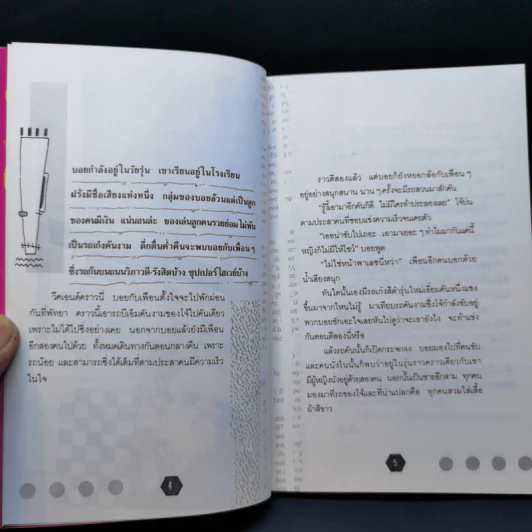 บอยกำลังอยู่ในวัยรุ่น เขาเรียนอยู่ในโรงเรียน
ฝรั่งมีชื่อเสียงแห่งหนึ่ง กลุ่มของบอยล้วนแต่เป็นลูก
ของคนมีเงิน แน่นอนล่ะ ของเล่นลูกคนรวยย่อมไม่พ้น
เป็นรถเก๋งคันงาม ดึกดื่นค่ำคืนจะพบบอยกับเพื่อนๆ
ซิ่งรถกันบนถนนวิภาวดี-รังสิตบ้าง ซุปเปอร์ไฮเวย์บ้าง
วีคเอนด์คราวนี้ บอยกับเพื่อนตั้งใจจะไปพักผ่อน
กันที่พัทยา คราวนี้เอารถบีเอ็มคันงามของไข้ไปคันเดียว
เพราะไม่ได้ไปซิ่งอย่างเคย นอกจากบอยแล้วยังมีเพื่อน
อีกสองคนไปด้วย ทั้งหมดเดินทางกันตอนกลางคืน เพราะ
รถน้อย และสามารถซิ่งได้เต็มที่ตามประสาคนมีความเร็ว
ในใจ
4
ราวตีสองแล้ว แต่บอยก็ยังหยอกล้อกับเพื่อนๆ
อยู่อย่างสนุกสนาน นานๆ ครั้งจะมีรถสวนมาสักคัน
"รู้งี้เอามาอีกคันก็ดี ไม่มีใครท้าประลองเลย" ไข้บ่น
ตามประสาคนที่ชอบแข่งความเร็วจนเคยตัว
"เออน่าขับไปเถอะ เอามาเยอะๆ ทำไมมากันแค่นี้
หญิงก็ไม่มีให้โชว์" บอยพูด
"ไม่ใช่หน้าพาเลซนี่หว่า" เพื่อนอีกคนบอกด้วย
น้ำเสียงสนุก
ทันใดนั้นเองมีรถเก๋งสีดำรุ่นใหม่เอี่ยมคันหนึ่งแซง
ขึ้นมาจากไหนไม่รู้ มาเทียบรถคันงามซึ่งไข้กำลังขับอยู่
พวกบอยชักเอะใจเลยหันไปดูว่าจะเอายังไง จะท้าแข่ง
กันตอนตีสองนี่หรือ
แล้วรถคันนั้นก็เปิดกระจกลง บอยมองไปที่คนขับ
และคนนั่งในนั้นก็พบว่าอยู่ในรุ่นราวคราวเดียวกับเขา
มีผู้หญิงนั่งอยู่ด้วยสองคน นอกนั้นเป็นชายอีกสาม ทุกคน
มองมาที่รถของไข้และที่น่าแปลกคือ ทุกคนสวมใส่เสื้อ
ผ้าสีขาว
5